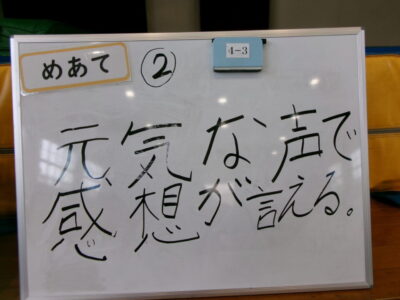 めあて ②
4-3
元気な声で
感想が言える。